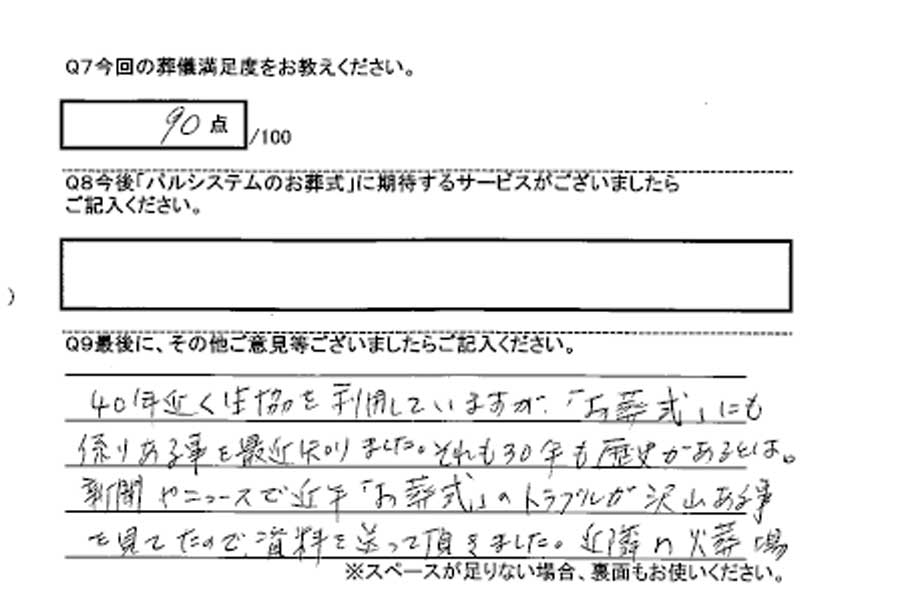 Q7今回の葬儀満足度をお教えください。
90点/100
Q8今後「パルシステムのお葬式」に期待するサービスがございましたら
ご記入ください。
)
Q9最後に、その他ご意見等ございましたらご記入ください。
40年近く生協を利用していますが、「お葬式」にも
係りある事を最近知りました。それも30年も歴史があるとは。
新聞やニュースで近年「お葬式」のトラブルが沢山ある事
を見てたので、資料を送って頂きました。近隣の火葬場
※スペースが足りない場合、裏面もお使いください。